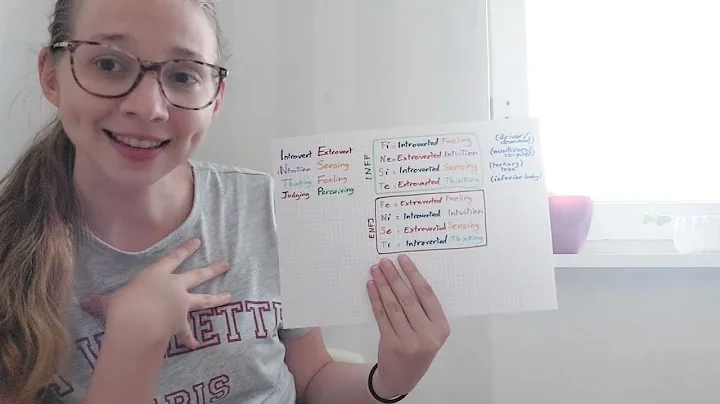 Introvert Extrovert
iNtuition Sensing
Thinking Feeling
Judging Perceiving
INFP
Fi = Introverted Feeling
Ne = Extroverted Intuition
Si = Introverted Sensing
Te = Extroverted Thinking
(driver/
dominant)
(auxilliary/
copilot)
(tertiary/
teen)
(inferior baby)
ENFJ
Fe = Extroverted Feeling
Ni = Introverted Intuition
Se = Extroverted Sensing
Ti = Introverted Thinking
PARIS